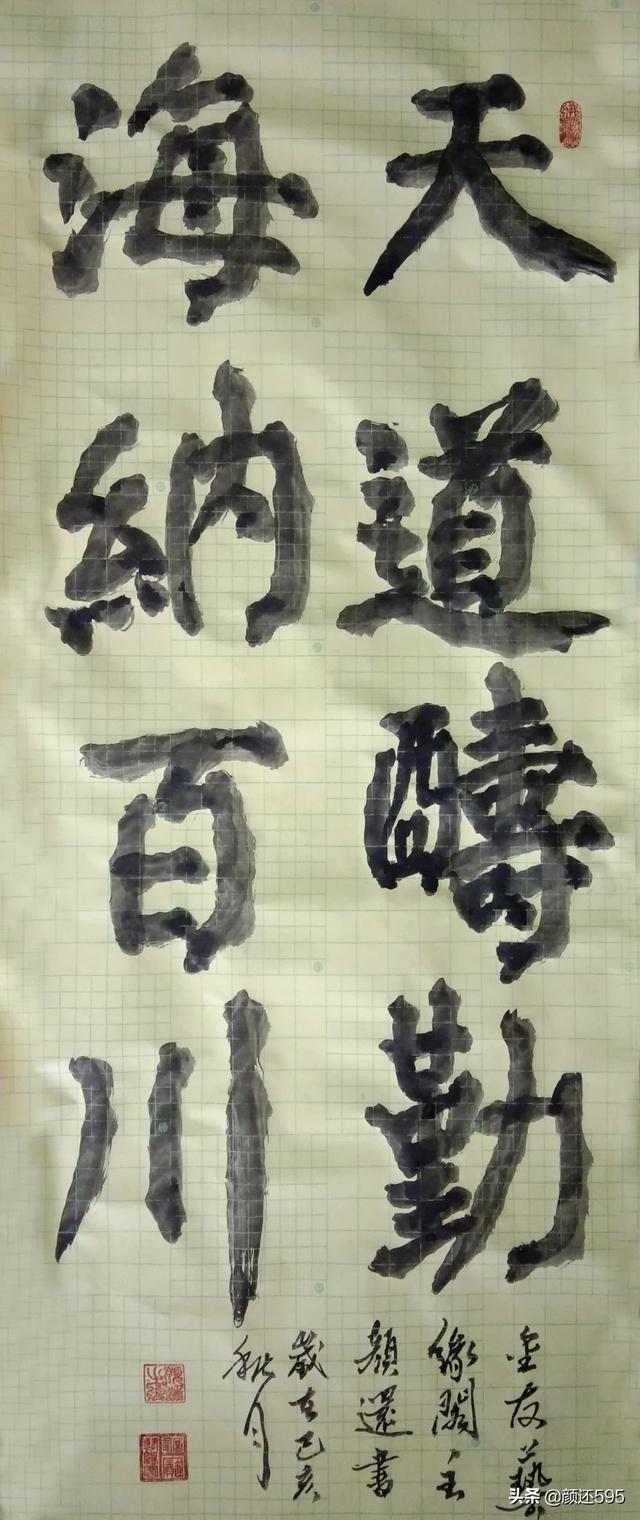 天道酬勤
海納百川
金友藝
緣閣主
顏還書
歲在己亥
秋月
头条 @颜还595